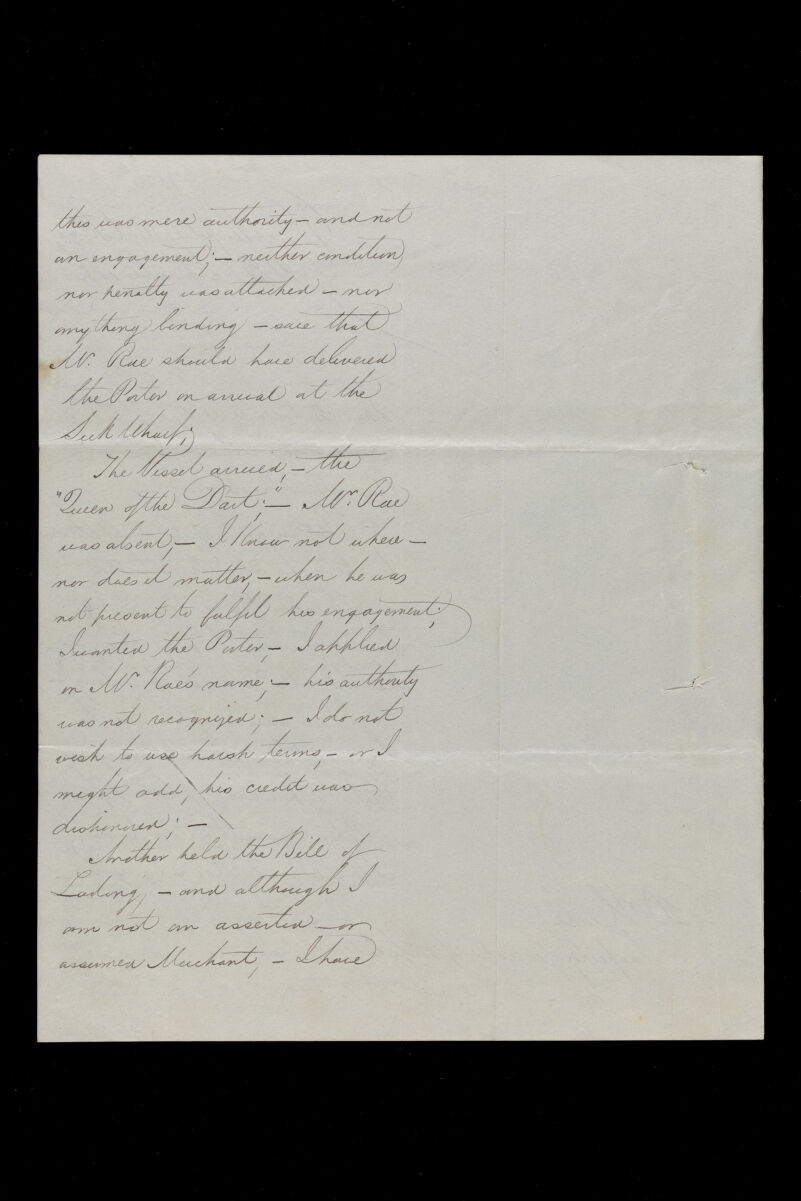 this was mere authority – and not
an engagement; – neither condition
nor penalty was attached – nor
anything binding – save that
Mr. Rae should have delivered
the Porter on arrival at the
Wharf;
The Vessel arrived, – the
"Queen of the Dart;" – Mr. Rae
was absent, – I know not where –
nor does it matter, – when he was
not present to fulfil his engagement;
I wanted the Porter, – I applied
in Mr. Rae's name; – his authority
was not recognized; – I do not
wish to use harsh terms, – or I
might add, his credit was
dishonored; –
Another held the Bill of
Lading, – and although I
am not an asserted – or
assumed Merchant, – I have